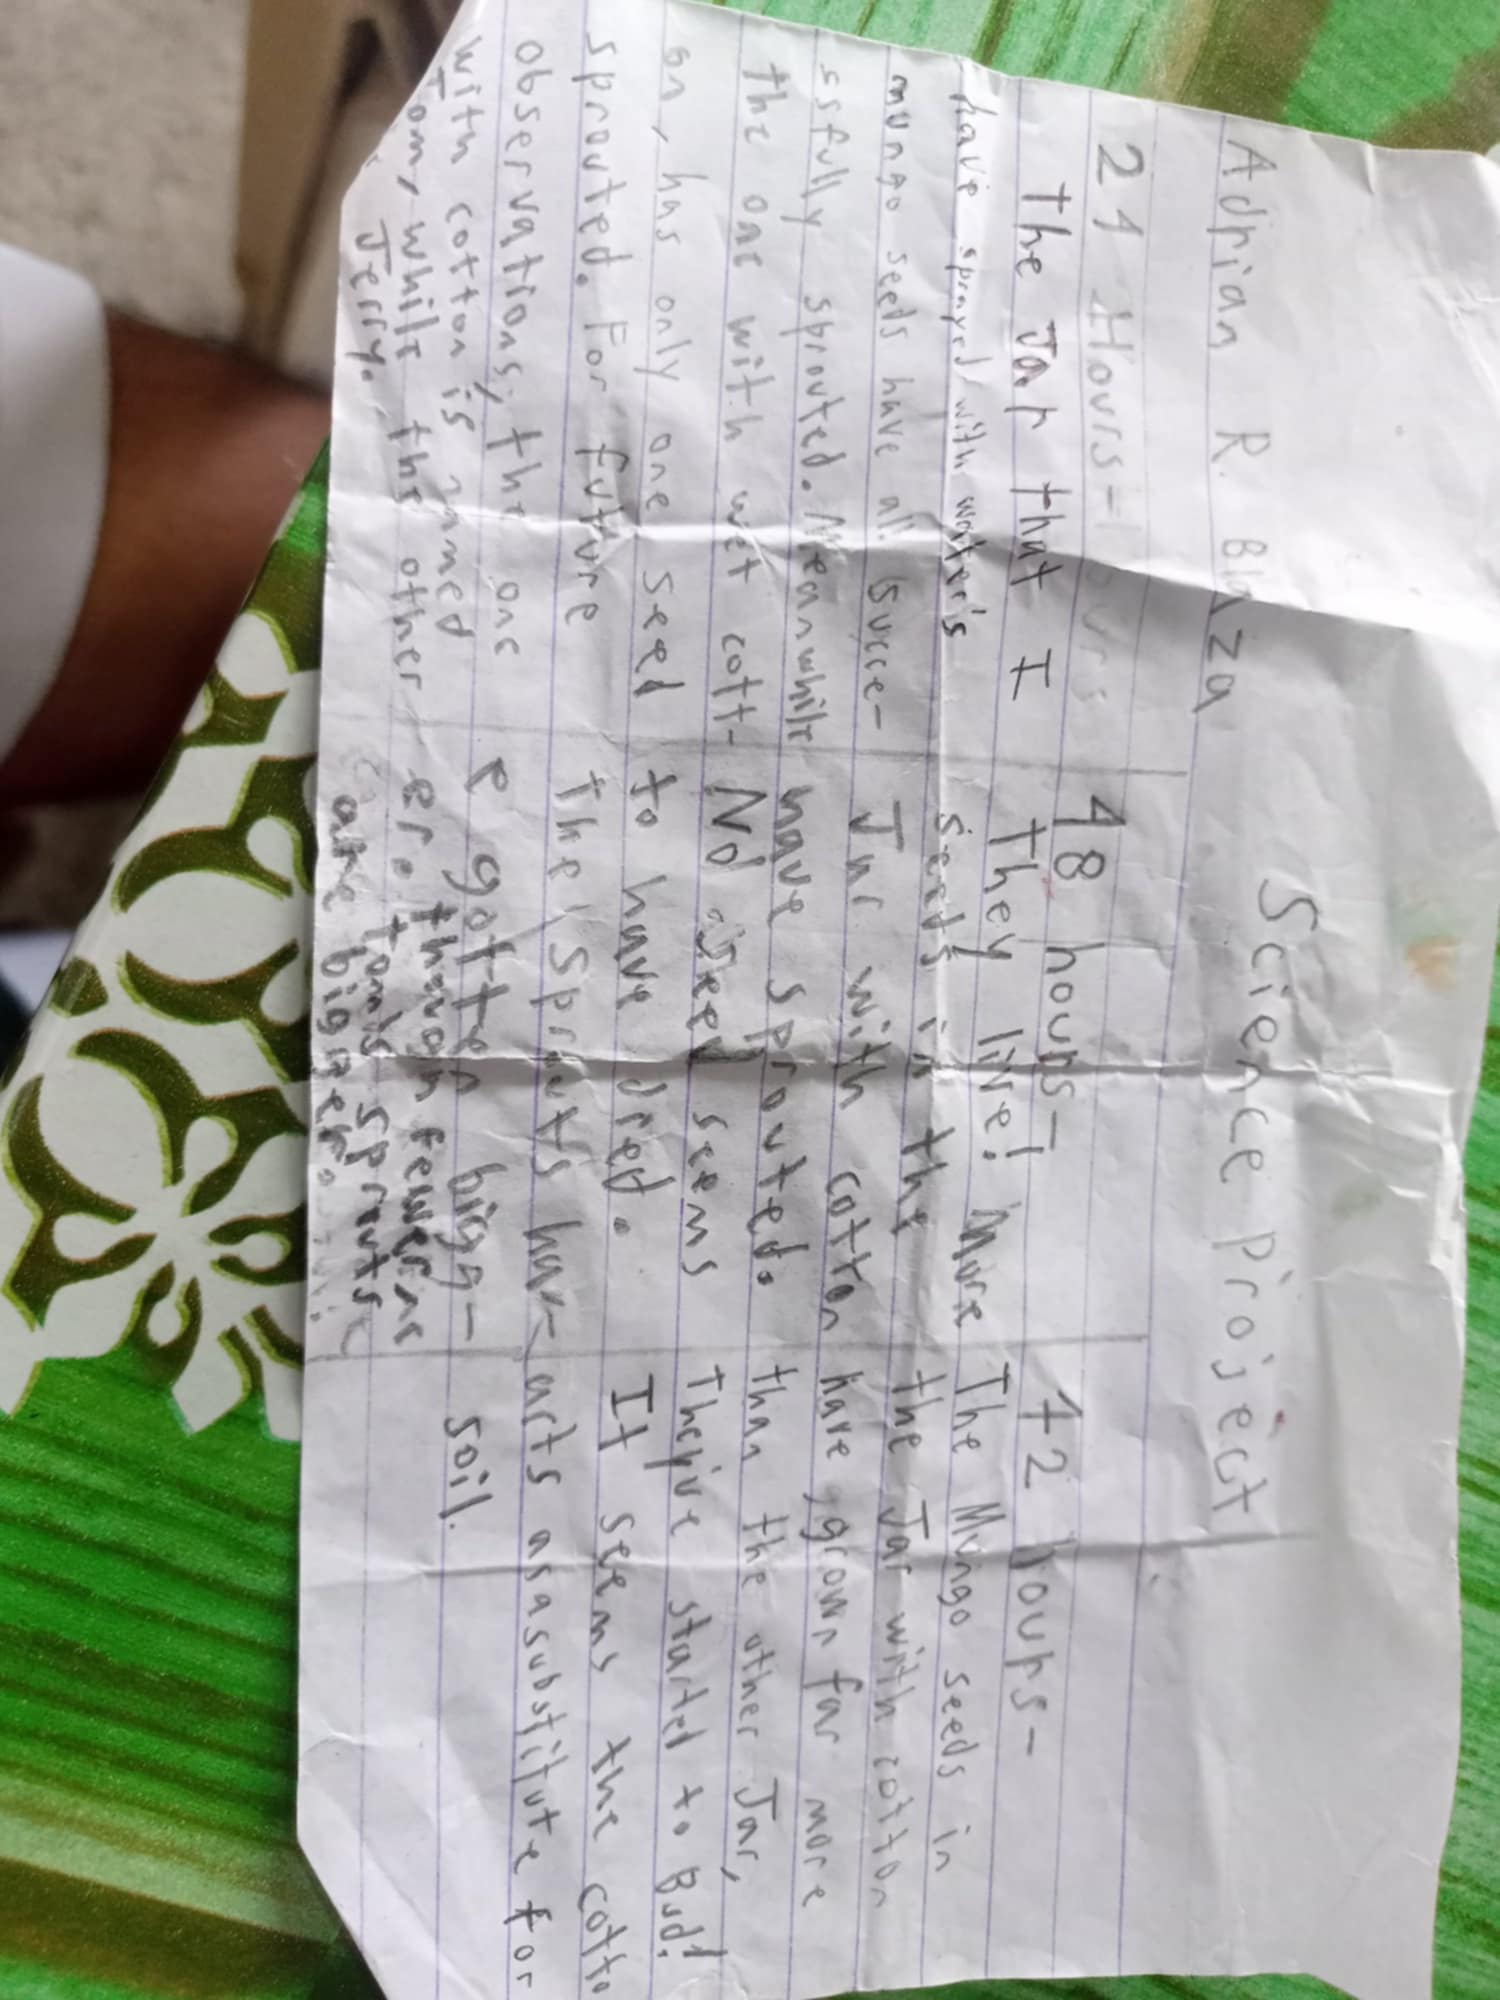 Science Project
Adrian R. Blaza
24 Hours-
The Jar that I
have sprayed with water's
mungo seeds have all succe-
ssfully sprouted. Meanwhile
the one with wet cott-
on, has only one seed
sprouted. For future
observations, the one
with cotton is named
Tom, while the other
Jerry.
48 hours-
They live! More
seeds in the
Jar with cotton
have sprouted.
No seed seems
to have dred.
The sprouts hav-
e gotten bigg-
er. though fewer
tom's sprouts
are bigger.
72 hours-
The Mungo seeds in
the Jar with cotton
have grown far more
than the other Jar,
They've started to Bud!
It seems the cotto
acts as a substitute for
soil.